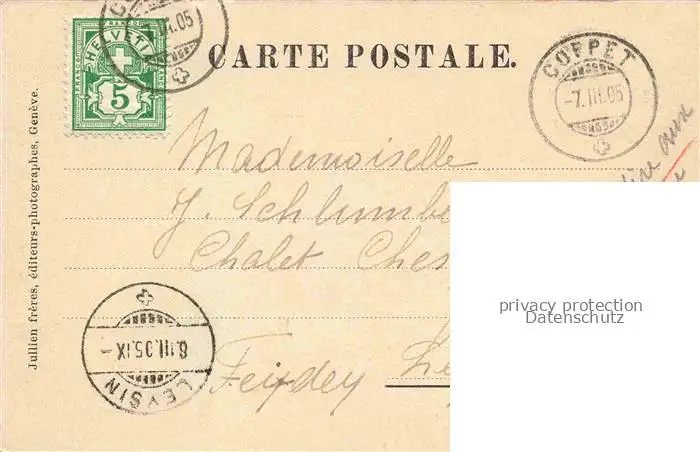 HELVETIA
FRANCO
5
CARTE POSTALE.
COPPET
-7.III.05
Mademoiselle
J. Schlumbe
Chalet Ches
Feydey Le
LEYSIN
8.III.05.IX-
Jullien frères, éditeurs-photographes, Genève.
aux
privacy protection
Datenschutz